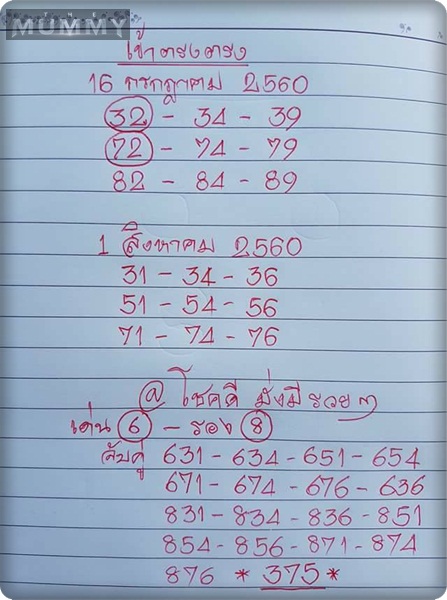 MUMMY
เข้าตรงตรง
16 กรกฎาคม 2560
32 - 34 - 39
72 - 74 - 79
82 - 84 - 89
1 สิงหาคม 2560
31 - 34 - 36
51 - 54 - 56
71 - 74 - 76
@ โชคดี มั่งมี รวยๆ
เด่น 6 - รอง 8
จับคู่ 631 - 634 - 651 - 654
671 - 674 - 676 - 636
831 - 834 - 836 - 851
854 - 856 - 871 - 874
876 * 375 *